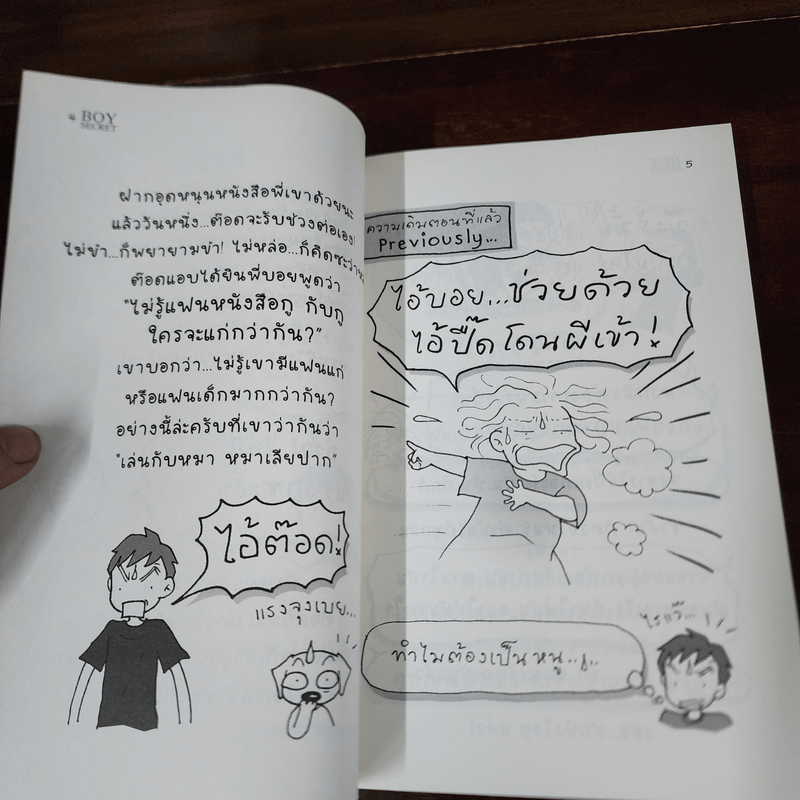 4 BOY
SECRET
ฝากอุดหนุนหนังสือพี่เขาด้วยนะ
แล้ววันหนึ่ง...ต๊อดจะรับช่วงต่อเอง!
ไม่ขำ...ก็พยายามขำ! ไม่หล่อ...ก็คิดซะว่า
ต๊อดแอบได้ยินพี่บอยพูดว่า
"ไม่รู้แฟนหนังสือกู กับกู
ใครจะแก่กว่ากัน?"
เขาบอกว่า...ไม่รู้เขามีแฟนแก่
หรือแฟนเด็กมากกว่ากัน?
อย่างนี้ล่ะครับที่เขาว่ากันว่า
"เล่นกับหมา หมาเลียปาก"
ไอ้ต๊อด!
แรงจุงเบย...
5
ความเดิมตอนที่แล้ว
Previously...
ไอ้บอย...ช่วยด้วย
ไอ้ปื๊ดโดนผีเข้า!
ทำไมต้องเป็นหนู..!..